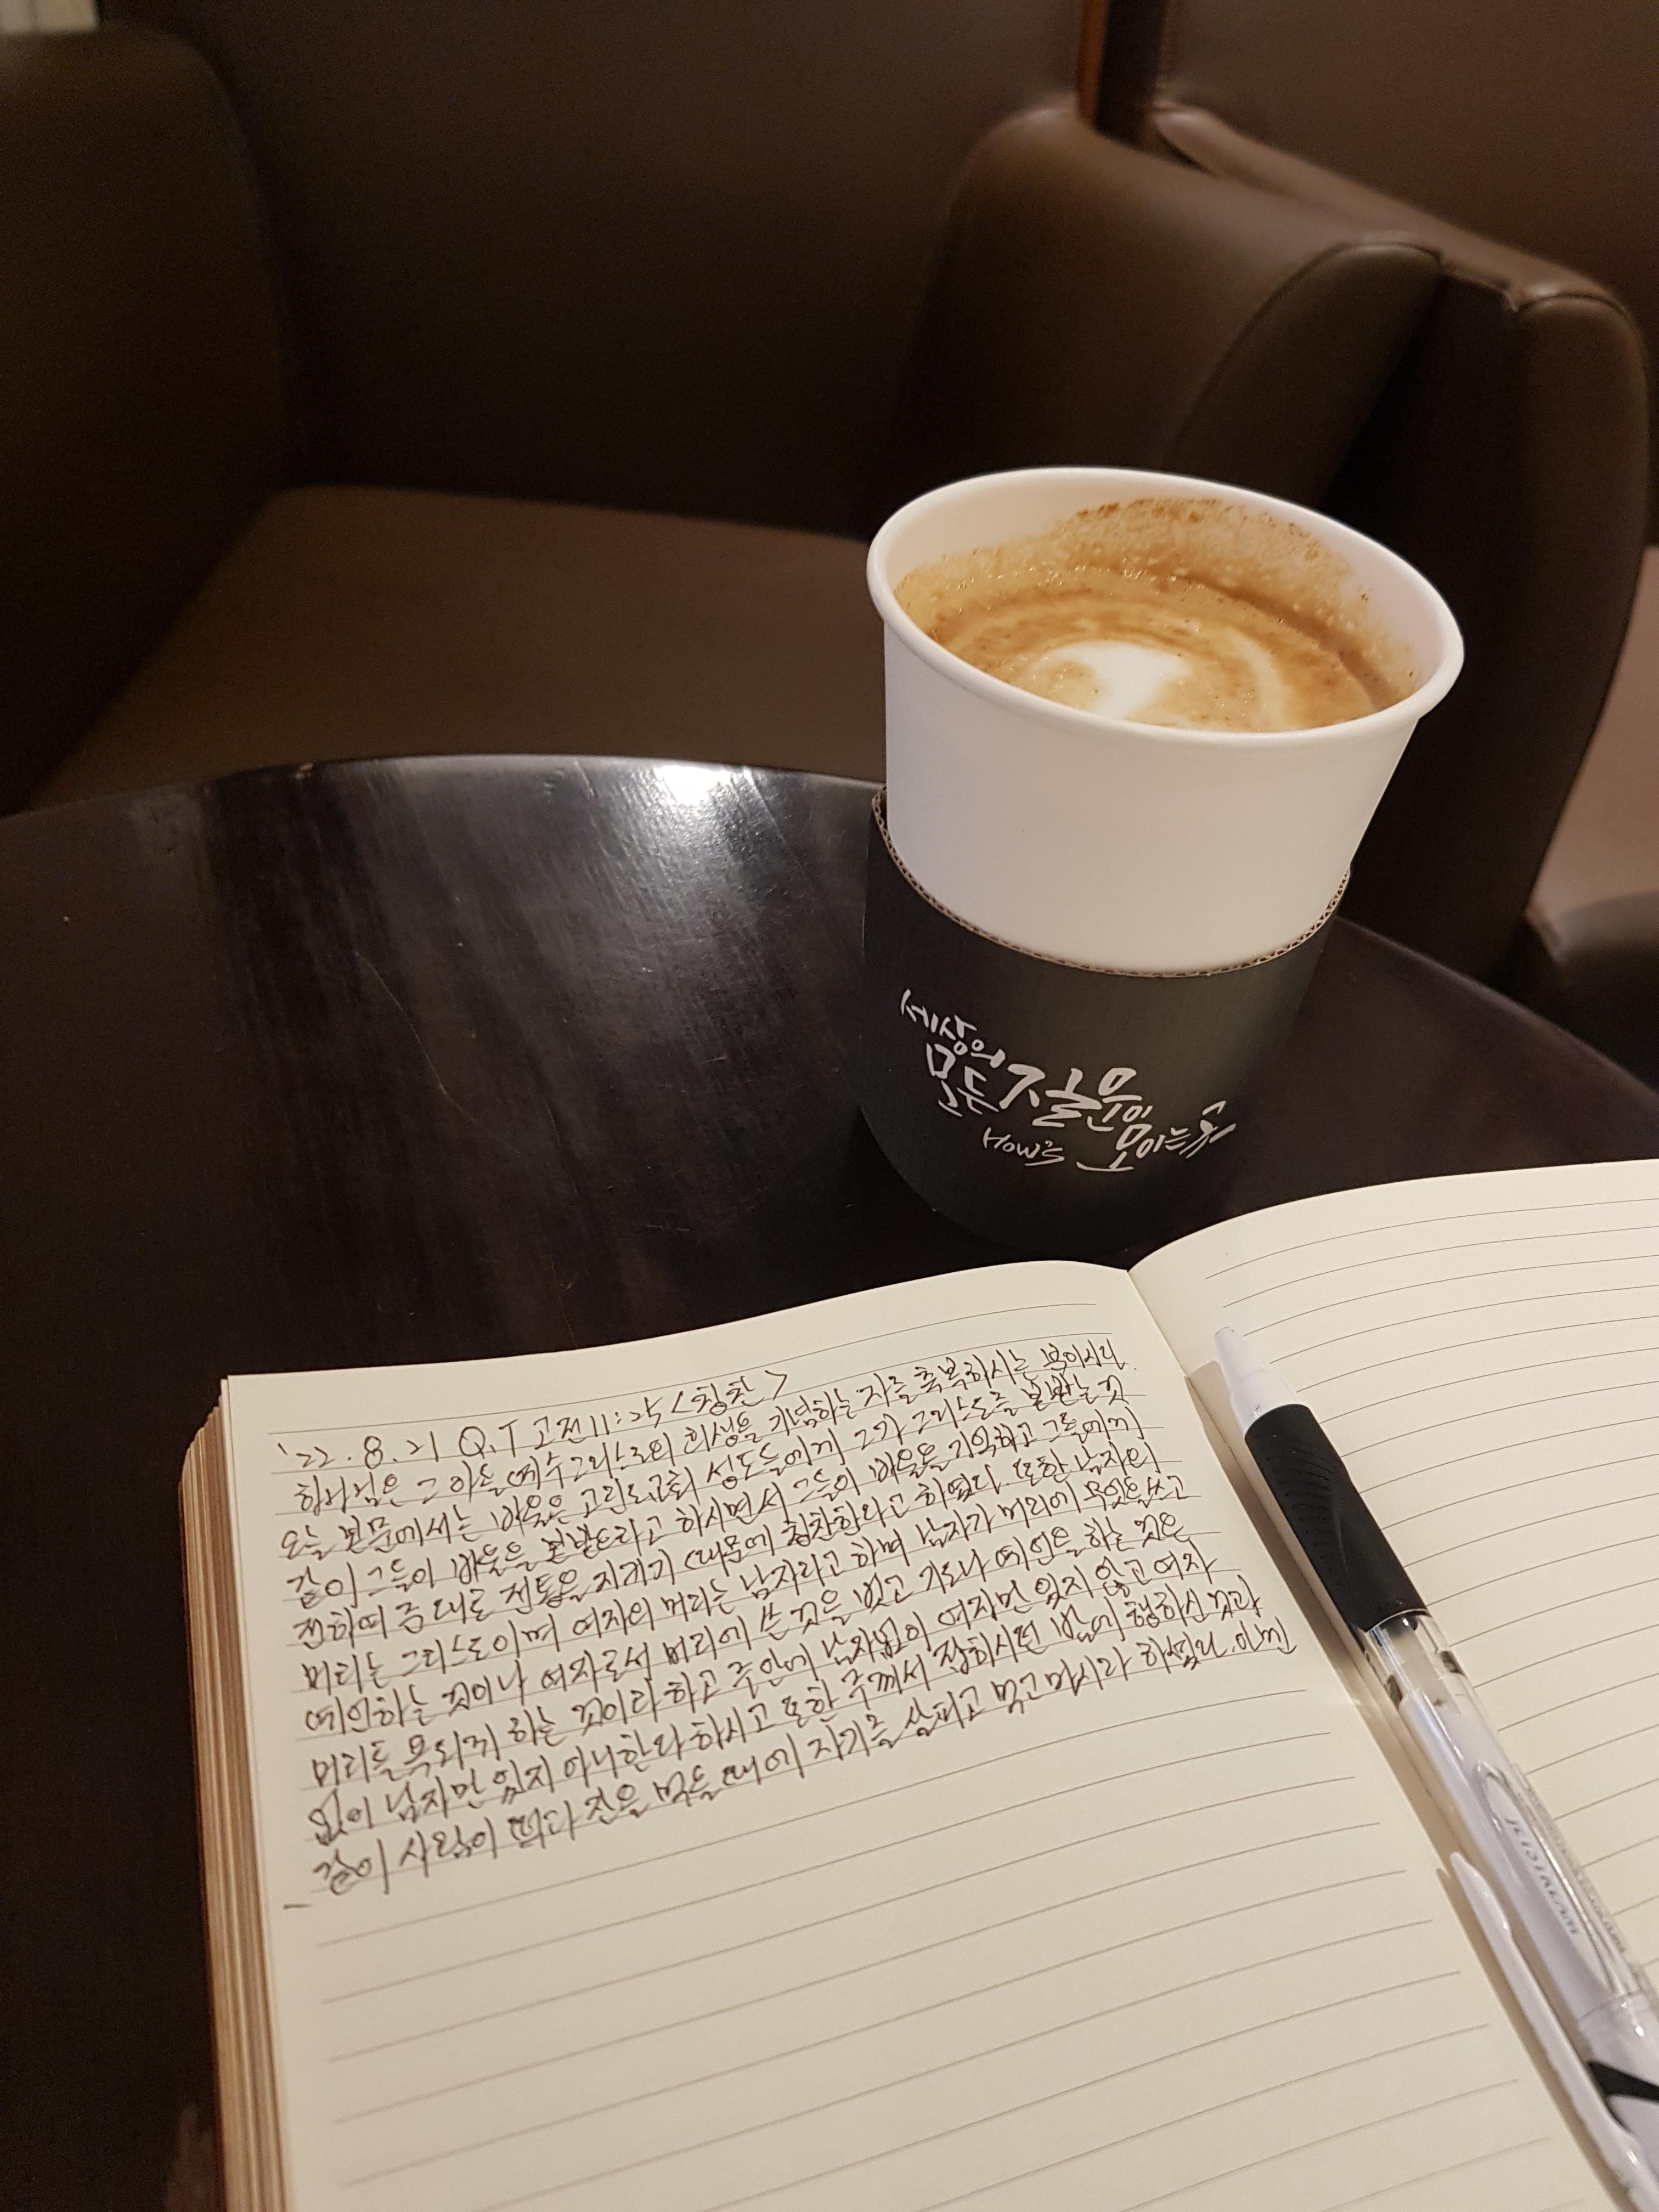 세상의
모든 젊음이
How's 모이는 곳
'22. 8. 21 Q.T 고전 11:25 <칭찬>
하나님은 그 아들 예수그리스도의 희생을 기념하는 자를 축복하시는 분이시다.
오늘 본문에서는 바울은 고린도교회 성도들에게 그가 그리스도를 본받는 것
같이 그들이 바울을 본받으라고 하시면서 그들이 바울을 기억하고 그들에게
전하여 준대로 전통을 지키기 때문에 칭찬한다고 하였다. 또한 남자의
머리는 그리스도이며 여자의 머리는 남자라고 하며 남자가 머리에 무엇을 쓰고
예언하는 것이나 여자로서 머리에 쓴 것을 벗고 기도나 예언을 하는 것은
머리를 욕되게 하는 것이라 하고 주안에 남자없이 여자만 있지 않고 여자
없이 남자만 있지 아니한다 하시고 또한 주께서 잡히시던 밤에 행하신 것과
같이 사람이 떡과 잔을 먹을 때에 자기를 살피고 먹고 마시라 하셨다.
JETSTREAM